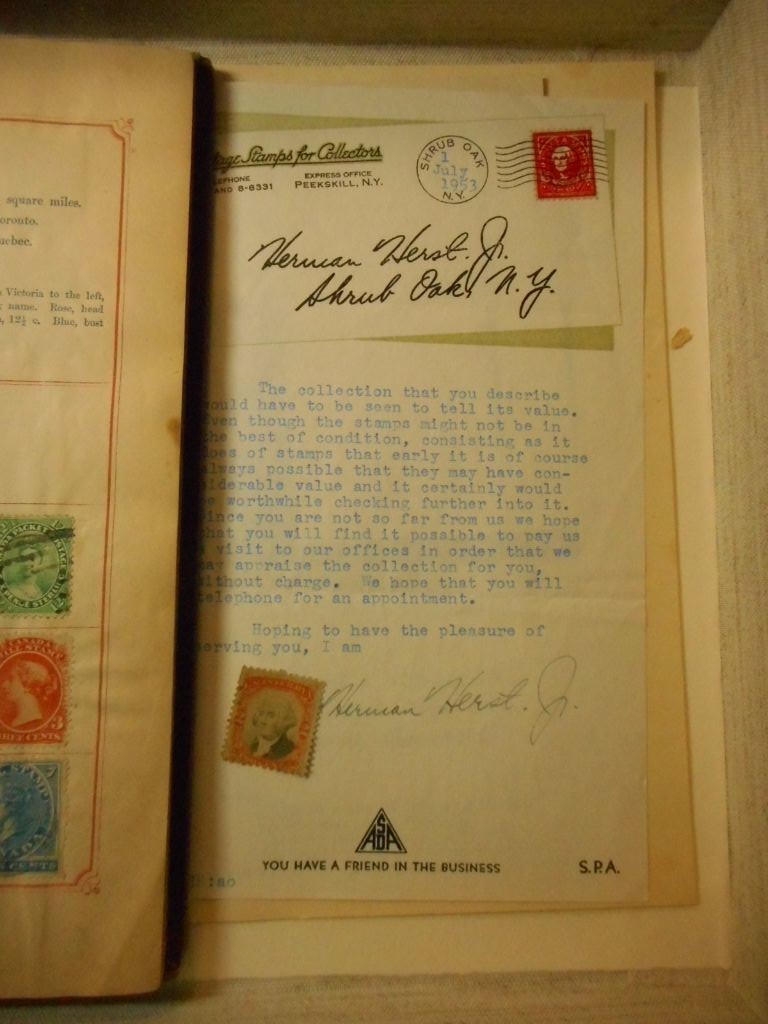 square miles.
Victoria to the left,
name. Rose, head
12½ c. Blue, bust
PACKET
3
CENTS
Stamps for Collectors
EXPRESS OFFICE
8-8331 PEEKSKILL, N.Y.
SHRUB OAK
1
July
1953
N.Y.
Herman Herst. Jr.
Shrub Oak, N.Y.
The collection that you describe
would have to be seen to tell its value.
Even though the stamps might not be in
the best of condition, consisting as it
does of stamps that early it is of course
always possible that they may have con-
siderable value and it certainly would
be worthwhile checking further into it.
Since you are not so far from us we hope
that you will find it possible to pay us
a visit to our offices in order that we
may appraise the collection for you,
without charge. We hope that you will
telephone for an appointment.
Hoping to have the pleasure of
serving you, I am
Herman Herst. Jr.
ASDA
YOU HAVE A FRIEND IN THE BUSINESS S.P.A.
:ao